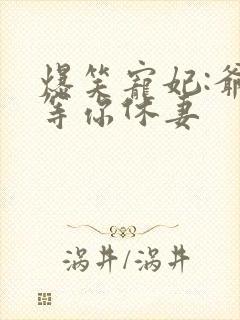 爆笑宠妃:爷
等你休妻
涡井/涡井